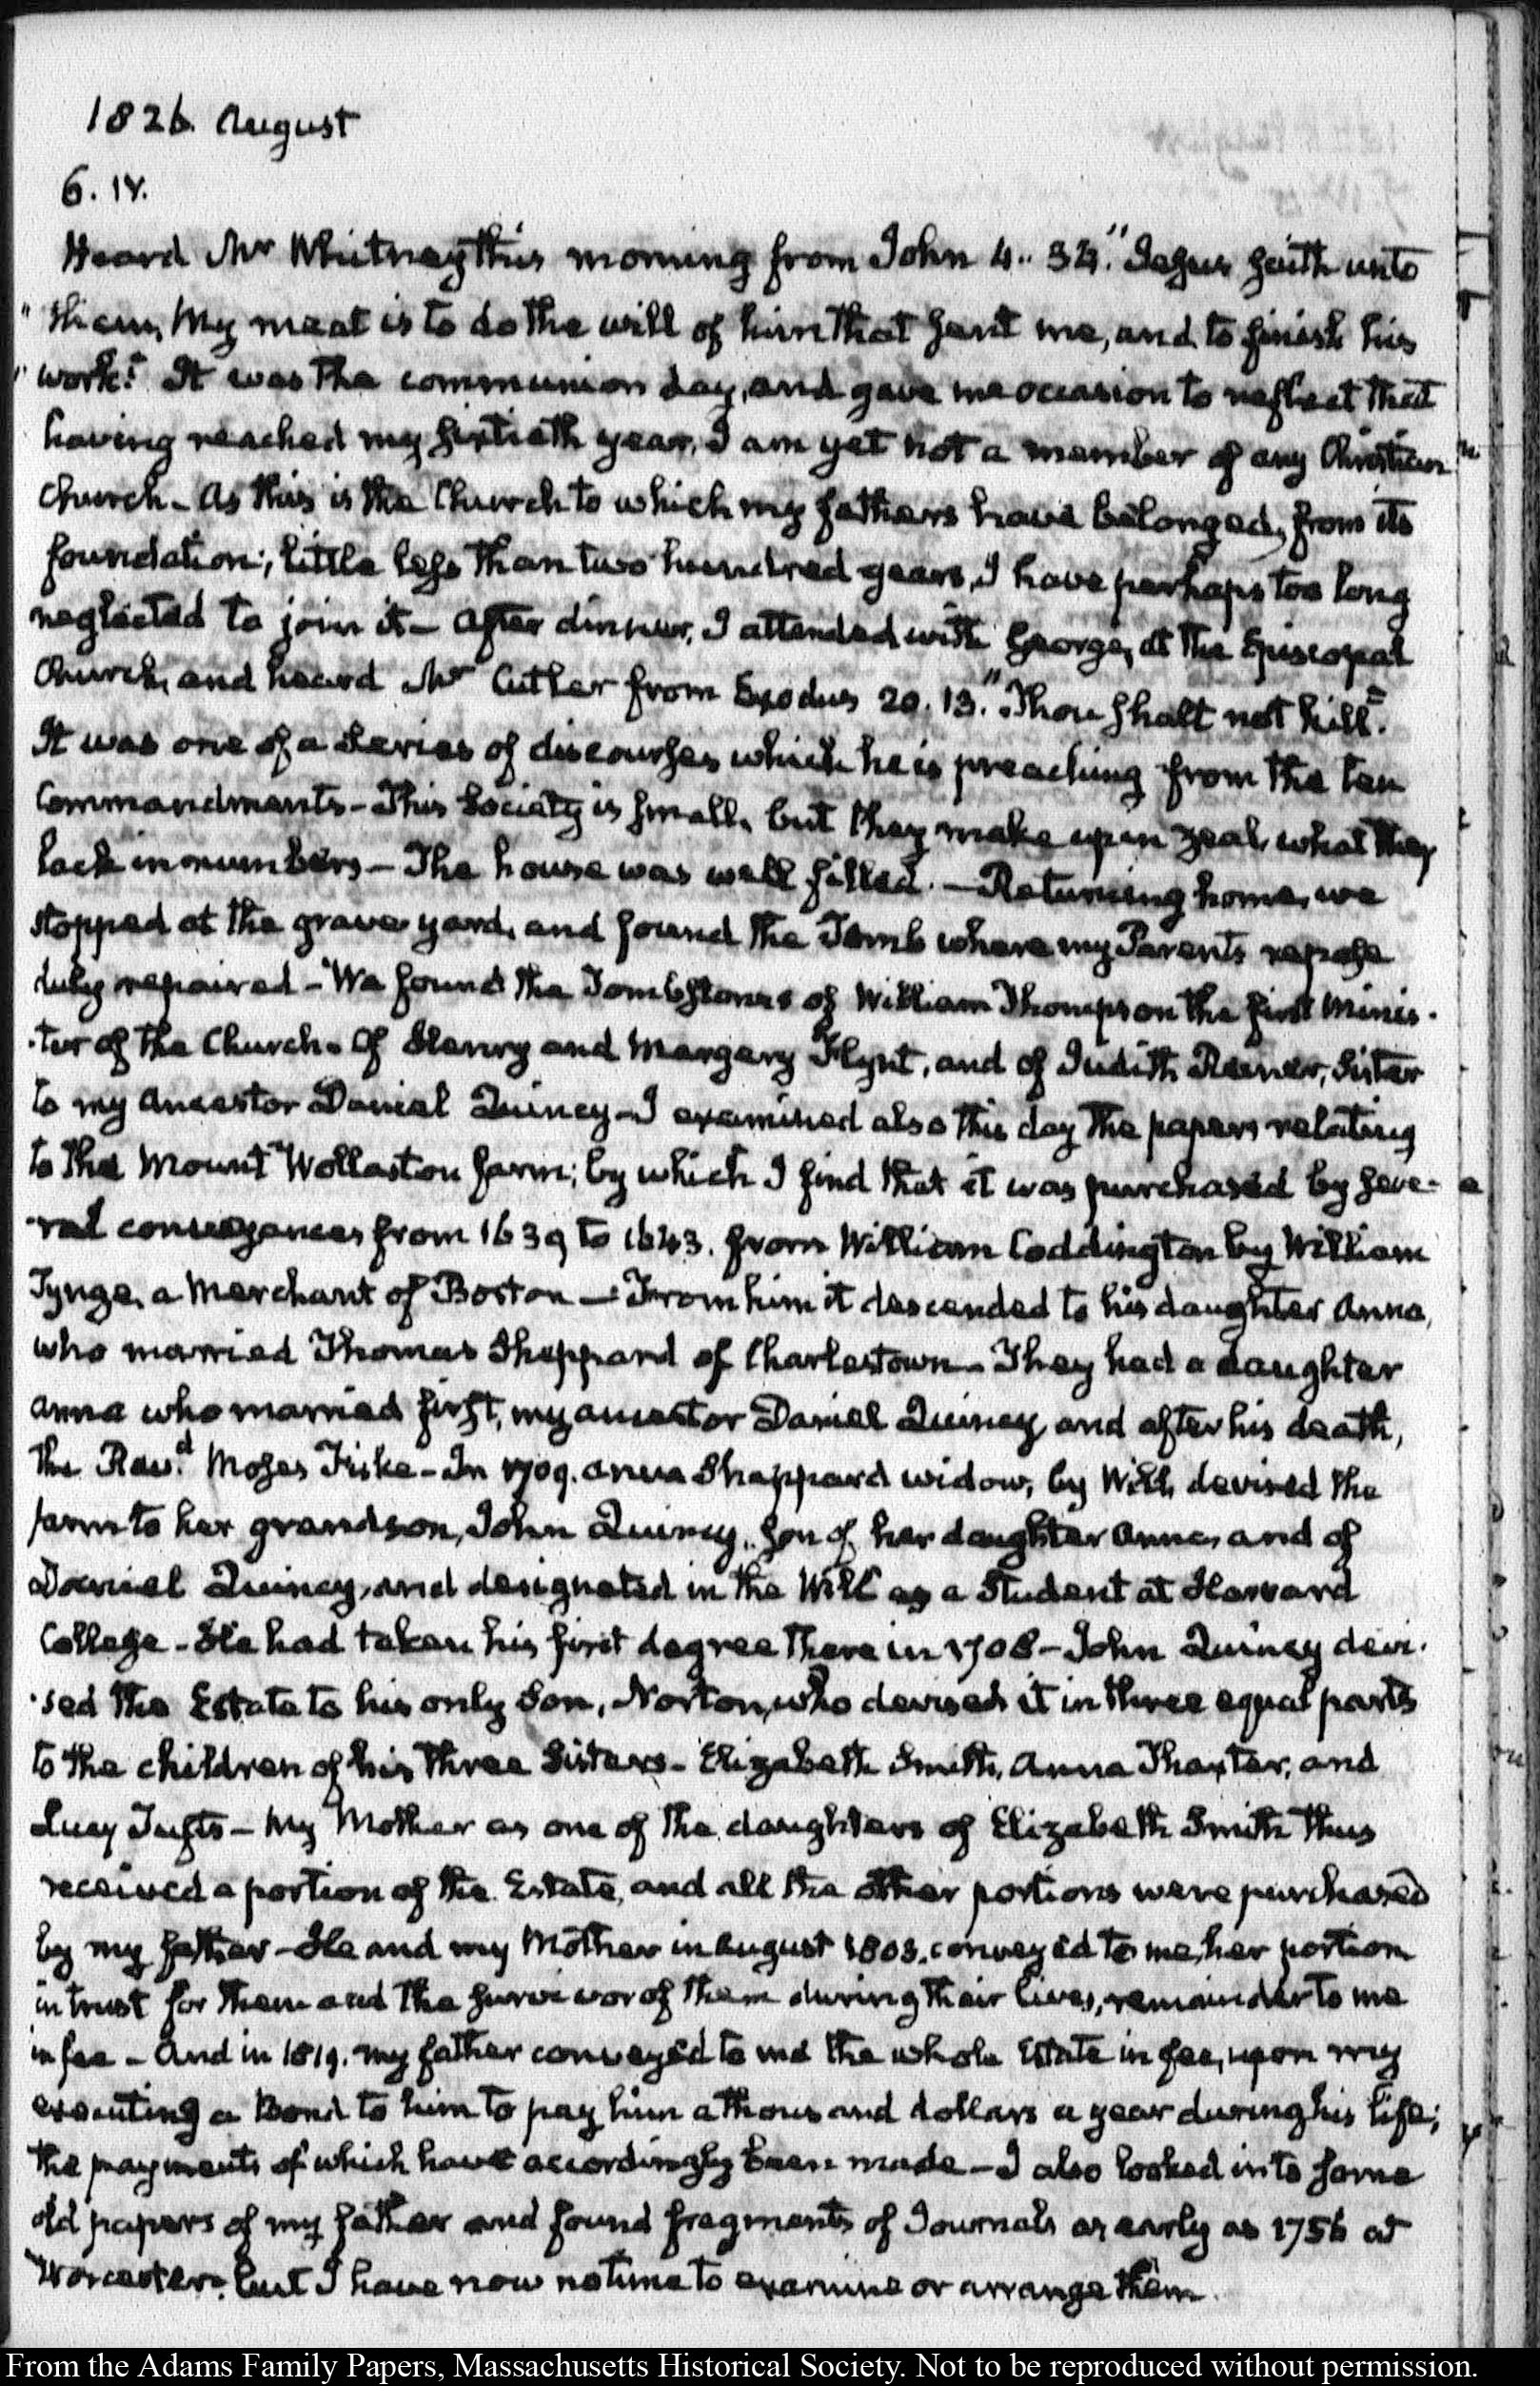 1826. August
6. IV.
Heard Mr Whitney this morning from John 4.. 34. "Jesus saith unto
" them, My meat is to do the will of him that sent me, and to finish his
" work." It was the communion day, and gave me occasion to reflect that
having reached my sixtieth year, I am yet not a member of any Christian
Church - As this is the Church to which my fathers have belonged, from its
foundation, little less than two hundred years, I have perhaps too long
neglected to join it - After dinner, I attended with George, at the Episcopal
Church, and heard Mr Cutler from Exodus 20. 13. "Thou shalt not kill".
It was one of a series of discourses which he is preaching from the ten
Commandments - This Society is small, but they make up in zeal, what they
lack in numbers - The house was well filled. - Returning home, we
stopped at the grave yard, and found the Tomb where my Parents repose
duly repaired - We found the Tombstones of William Thompson the first Minis-
-ter of the Church - Of Henry and Margery Flynt, and of Judith Reiner, Sister
to my Ancestor Daniel Quincy - I examined also this day the papers relating
to the Mount Wollaston farm; by which I find that it was purchased by seve-
-ral conveyances from 1639 to 1643. from William Coddington by William
Tynge, a Merchant of Boston - From him it descended to his daughter Anna,
who married Thomas Sheppard of Charlestown - They had a daughter
Anna who married first, my ancestor Daniel Quincy, and after his death,
the Revd. Moses Fiske - In 1709. Anna Sheppard widow, by Will, devised the
farm to her grandson, John Quincy, Son of her daughter Anna, and of
Daniel Quincy, and designated in the Will as a Student at Harvard
College - He had taken his first degree there in 1708 - John Quincy devi-
-sed the Estate to his only Son, Norton, who devised it in three equal parts
to the children of his three Sisters - Elizabeth Smith, Anna Thaxter, and
Lucy Tufts - My Mother as one of the daughters of Elizabeth Smith thus
received a portion of the Estate, and all the other portions were purchased
by my father - He and my Mother in August 1803. conveyed to me, her portion
in trust for them and the survivor of them during their lives, remainder to me
in fee - And in 1819. my father conveyed to me the whole Estate in fee, upon my
executing a Bond to him to pay him a thousand dollars a year during his life;
the payments of which have accordingly been made - I also looked into some
old papers of my father and found fragments of Journals as early as 1756 at
Worcester. but I have now no time to examine or arrange them.
From the Adams Family Papers, Massachusetts Historical Society. Not to be reproduced without permission.